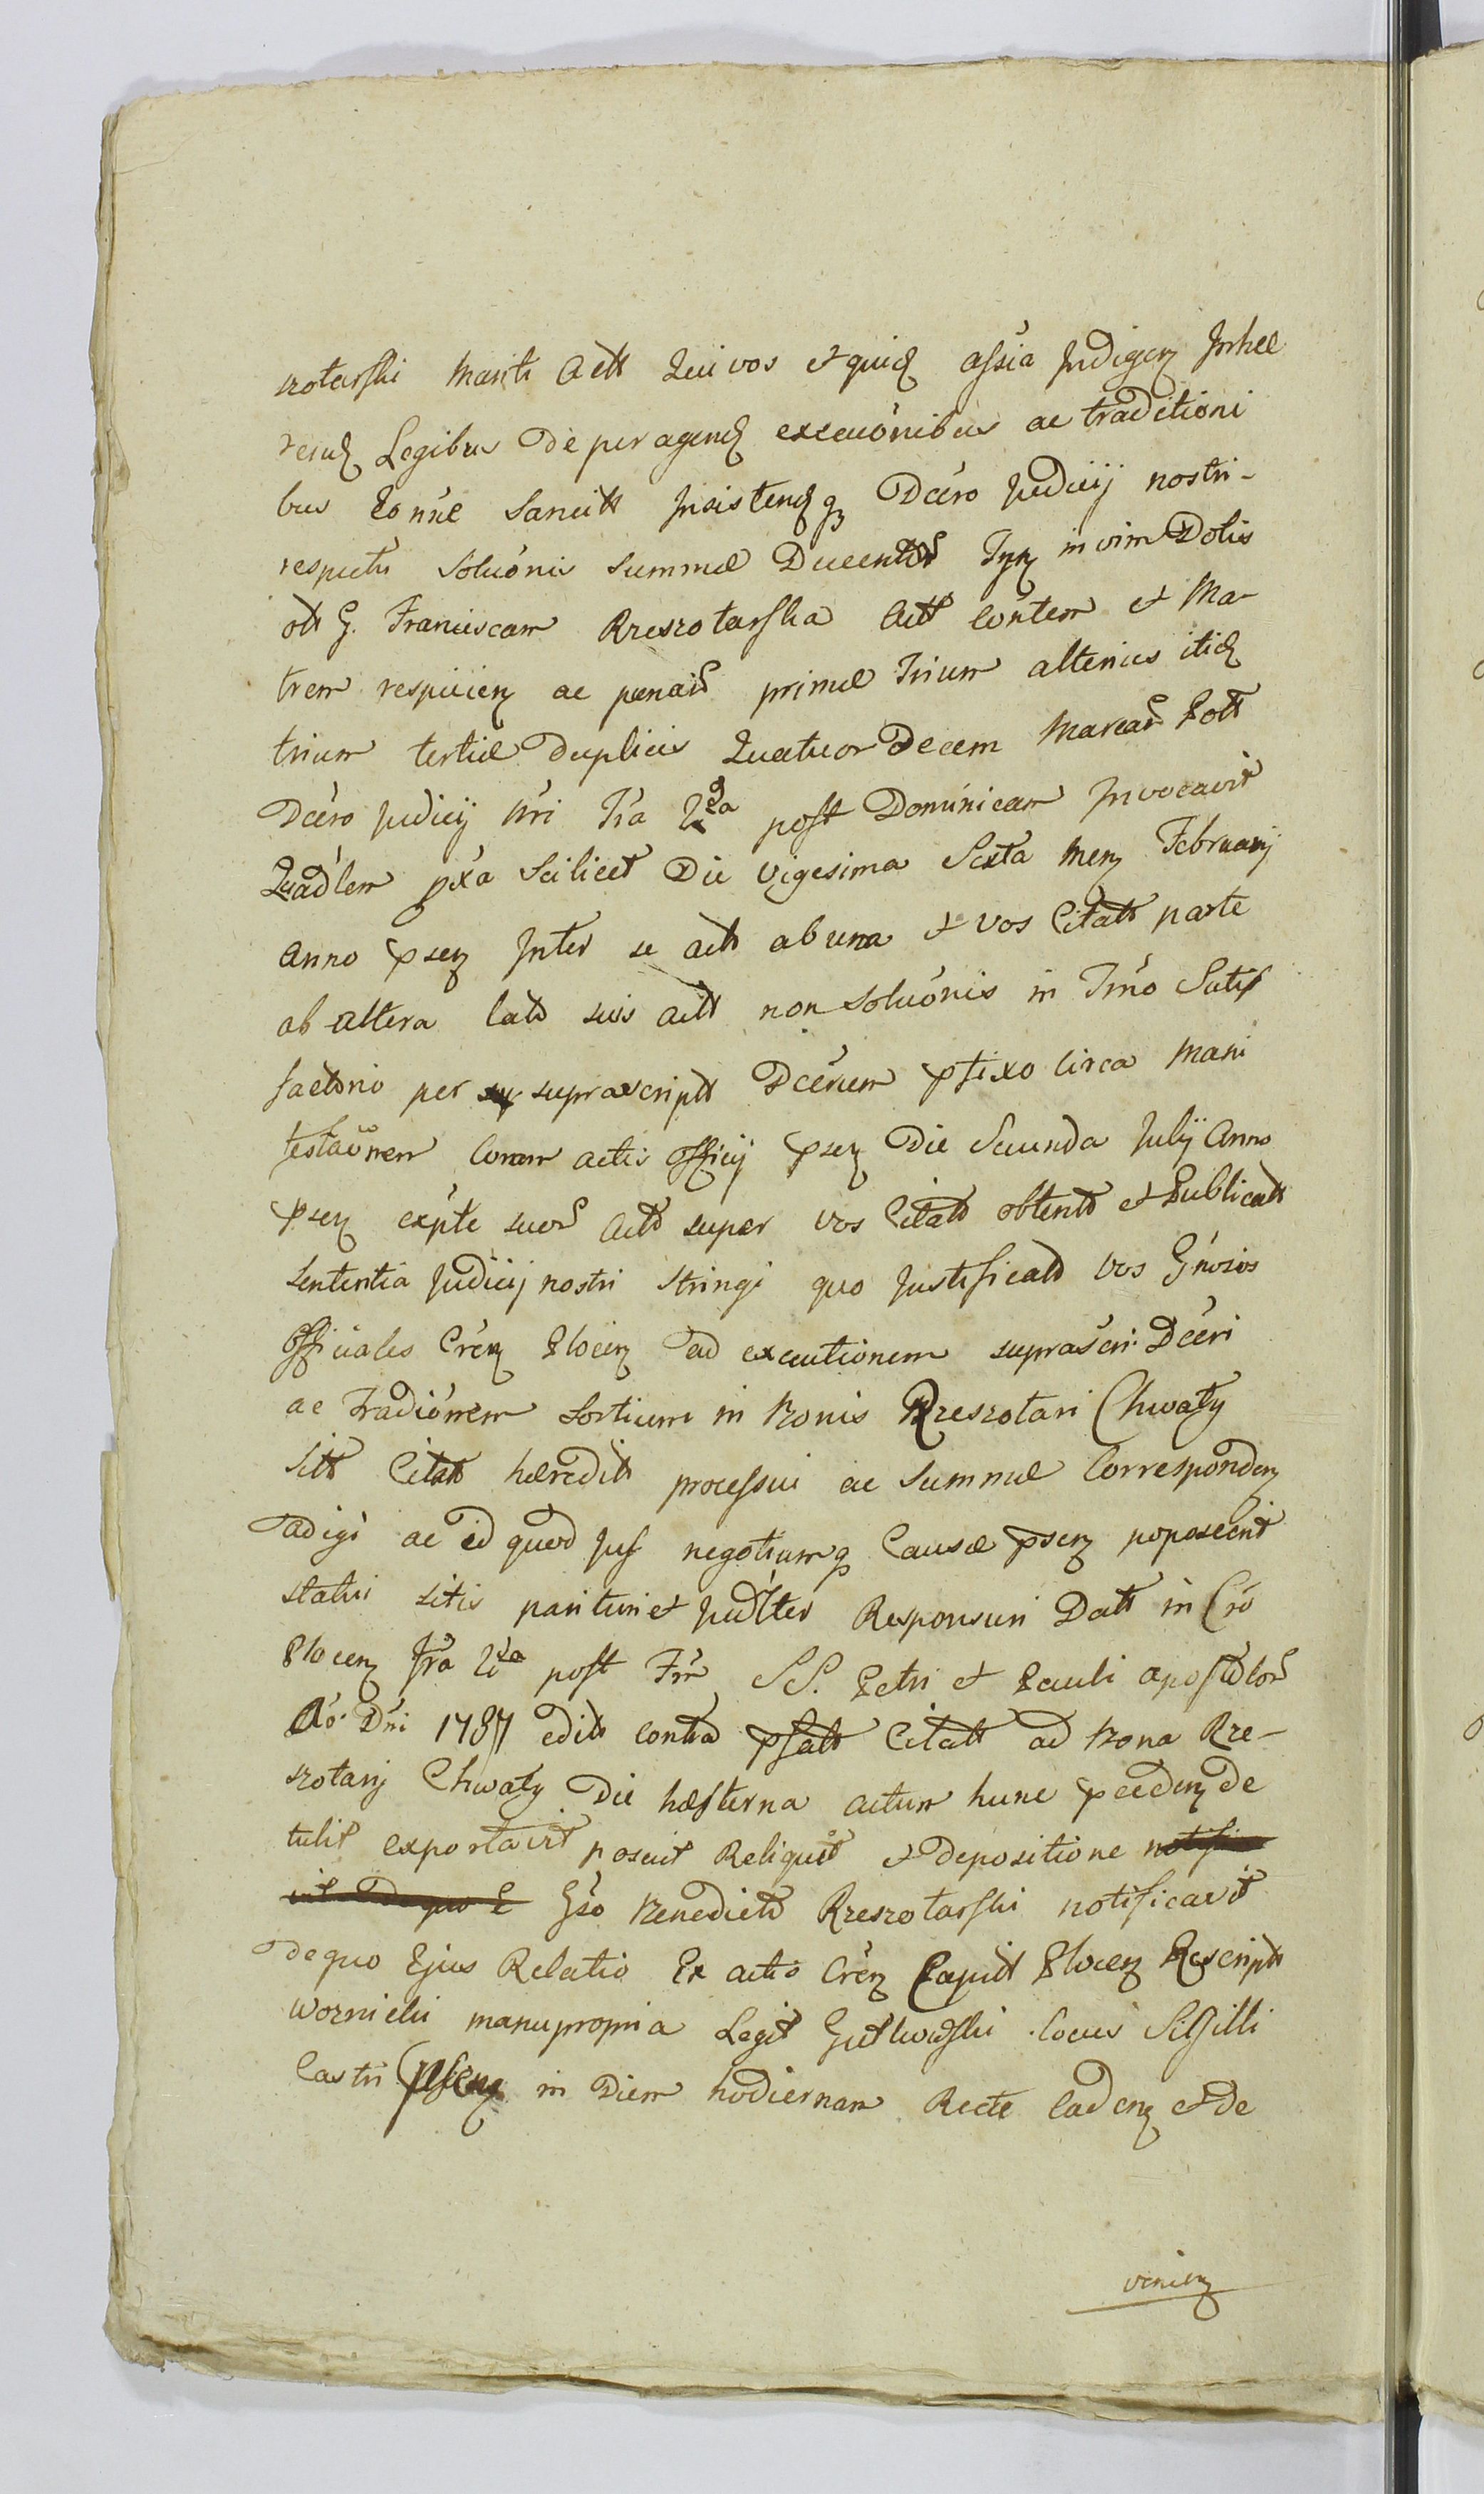 szotarski Mariti Actt Qui vos et quid assia Indigen Inhæ
rend Legibus de peragend execuonibus ac traditioni
bus Bonne Sancitt Insistendq Dcero Judicij nostri-
respectu Soluonis Summæ Ducentor Tyn in vim Dotis
ott G. Franciscam Rzeszotarska Actt Contem et Ma-
trem respicien ac penar primæ Trium alterius itid
trium tertiæ Duplicis Quatuor Decem Marcar Pott
Dcero Judicij nri Fra 2da post Dominicam Invocavit
Quadlem pxa Scilicet Die Vigesima Sexta Men Februarij
Anno psen Inter se actt ab una et vos Citatt parte
ab altera latt suis actt non Soluonis in Tmo Satis
factorio per suprascriptt Dcerum pfixo Circa Mani
festaonem Coram actis Officij psen Die Secunda Julij Anno
psen expte suor actt super vos Citatt obtentt et Publicatt
Sententia Judicij nostri Stringi quo Justificatt Vos Gnosos
Officiales Cren Plocen ad executionem suprascri: Dceri
ac Tradionem Sortium in Bonis Rzeszotari Chwały
Sitt Citatt hæreditt processui ac Summæ Corresponden
adigi ac id quod Jus negotiumq Causæ psen poposcerit
statui sitis parituri et Judlter Responsuri Datt in Cro
Plocen fra 2da post Fm SS. Petri et Pauli apostolor
Ao: Dni 1787 editt contra psatt Citatt ad Bona Rze-
szotarij Chwały Die hæsterna actum hunc pceden de
tulit exportavit posuit Reliquit et depositione notifica
vit de quo E Gso Benedictt Rzeszotarski notificavit
de quo Ejus Relatio Ex actis Cren Capitt Plocen Rescriptt
Woznicki manu propria Legit Gutkowski Locus Sigilli
Castri psen in Diem hodiernam Recte Caden et de
venien